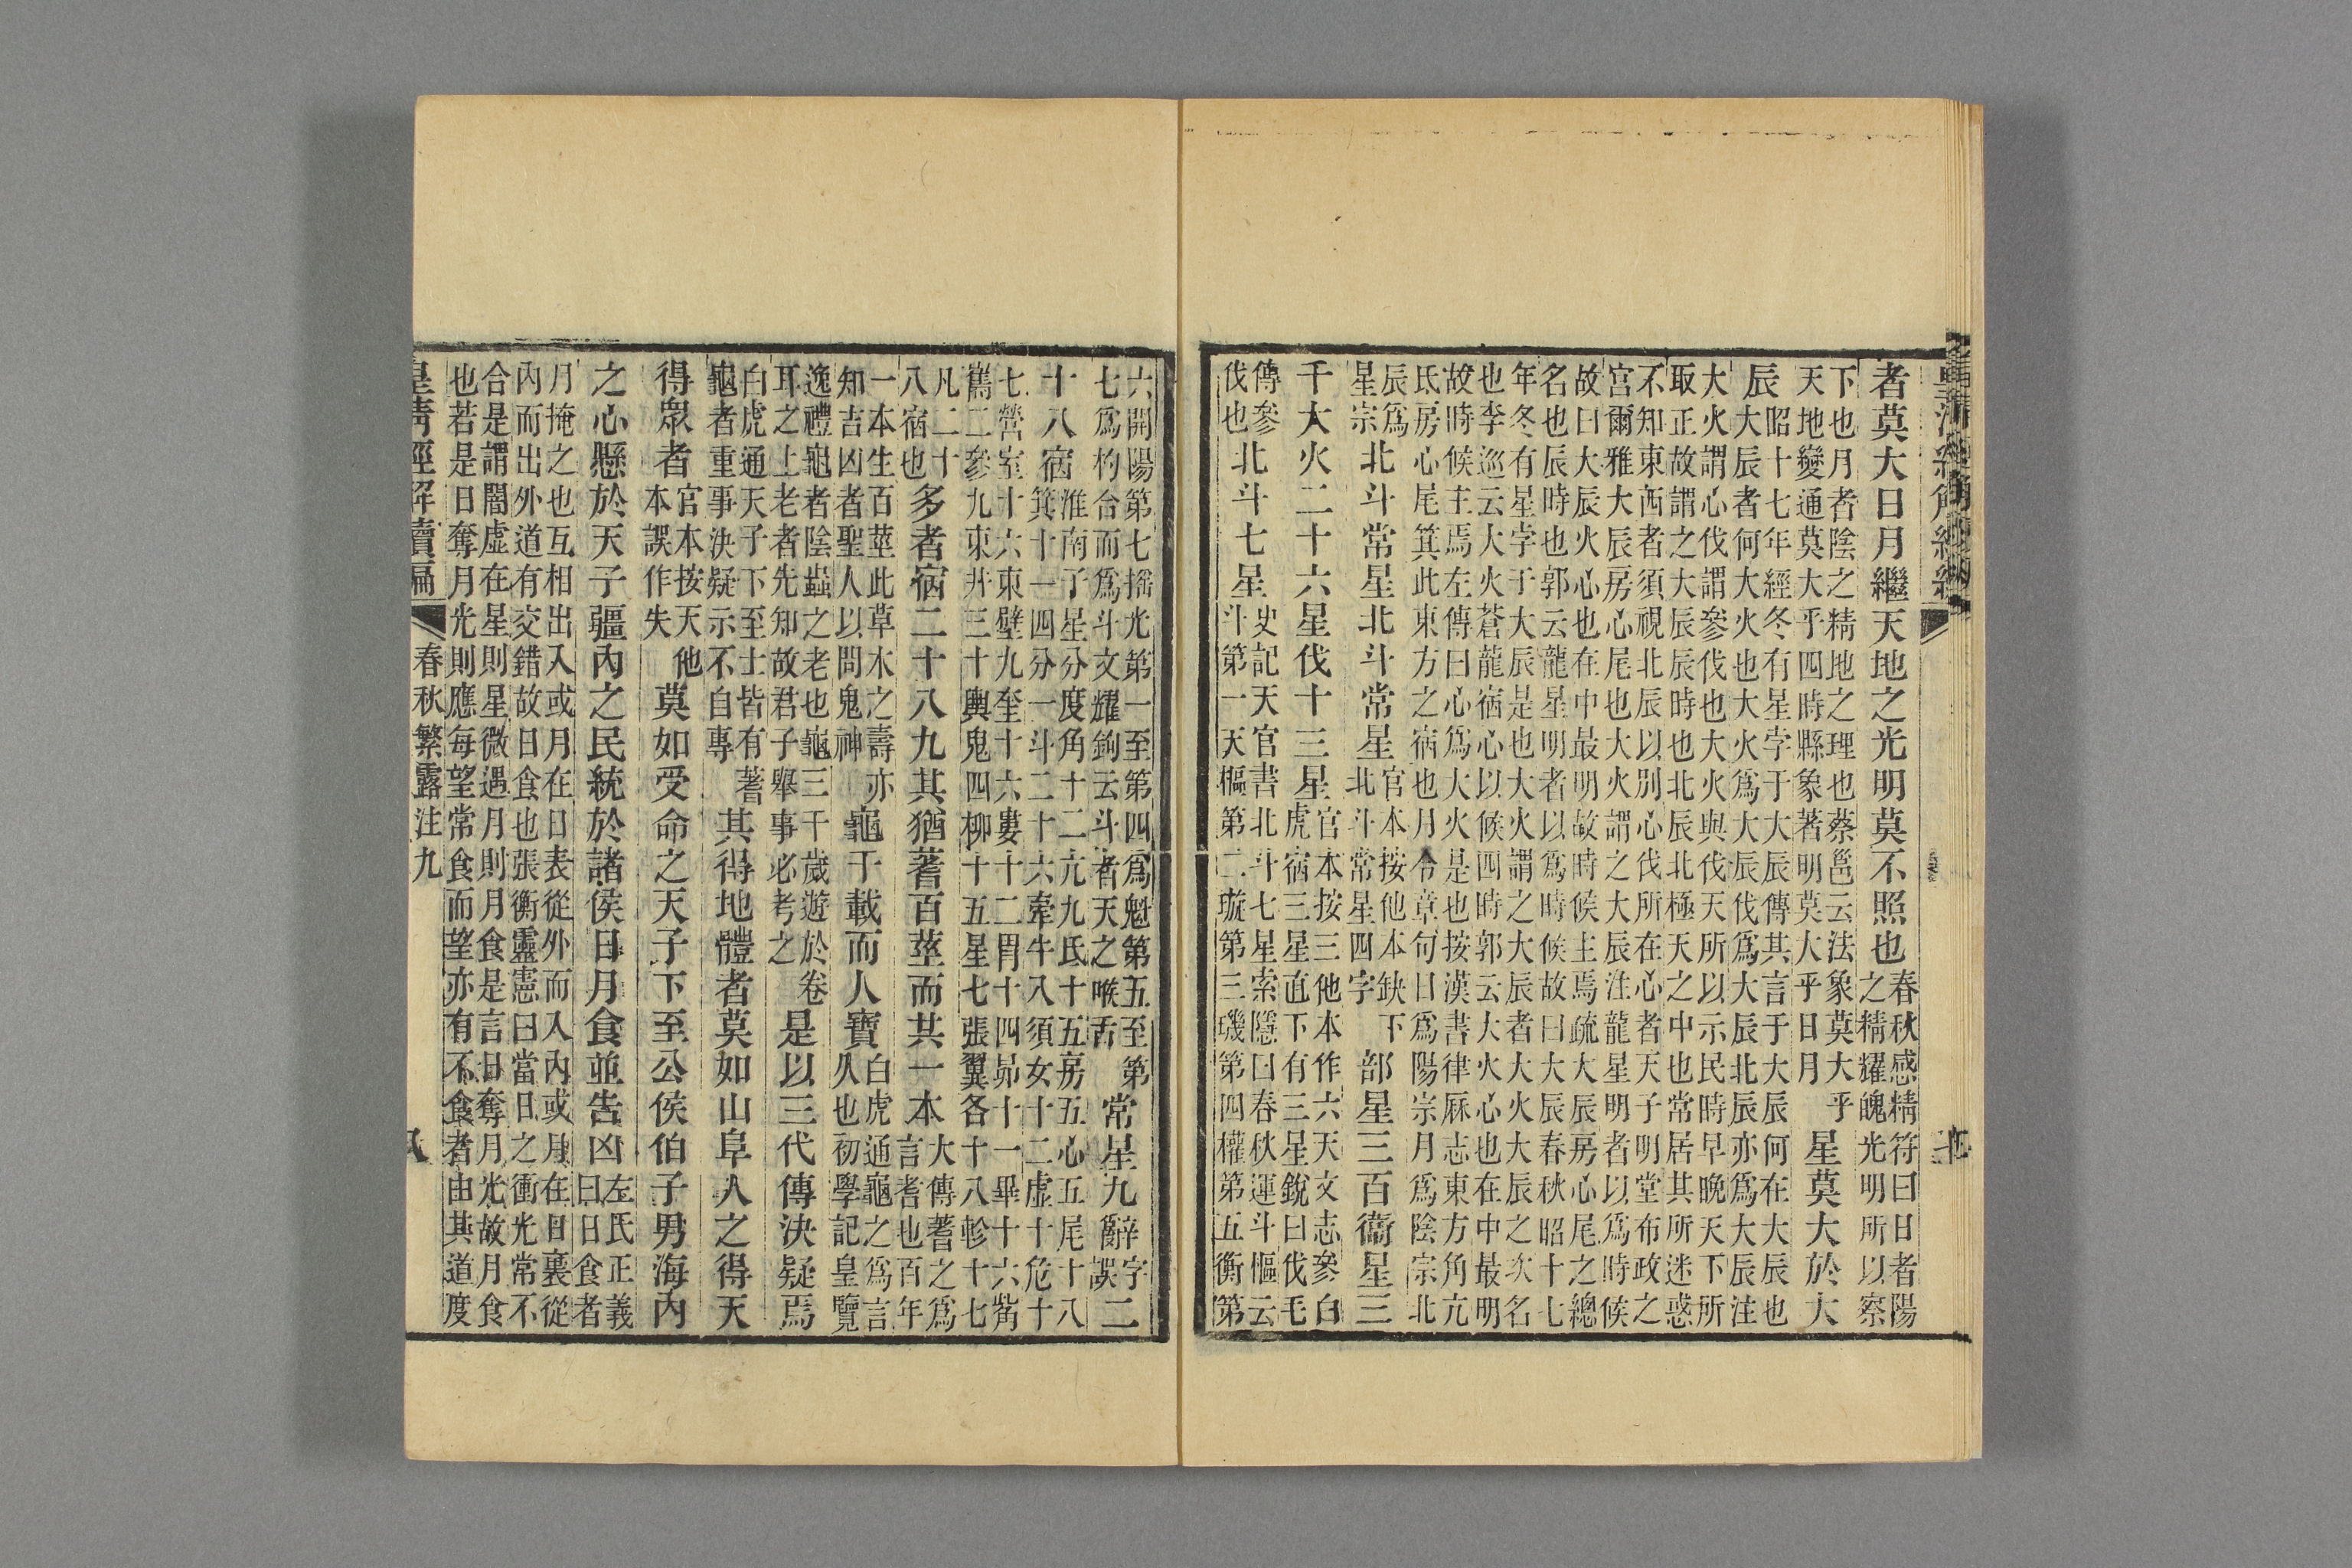 者莫大日月繼天地之光明莫不照也
春秋感精符曰日者陽
之精耀魄光明所以察
下也月者陰之精地之理也蔡邕云法象莫大乎
天地變通莫大乎四時縣象著明莫大乎日月
星莫大於大
辰
昭十七年經冬有星孛于大辰傳其言于大辰何在大辰也
大辰者何大火也大火爲大辰伐爲大辰北辰亦爲大辰注
大火謂心伐謂參伐也大火與伐天所以示民時早晚天下所
取正故謂之大辰辰時也北辰北極天之中也常居其所迷惑
不知東西者須視北辰以別心伐所在心者天子明堂布政之
宮爾雅大辰房心尾也大火謂之大辰注龍星明者以爲時候
故曰大辰火心也在中最明故時候主焉疏大辰房心尾之總
名也辰時也郭云龍星明者以爲時候故曰大辰春秋昭十七
年冬有星孛于大辰是也大火謂之大辰者大火大辰之次名
也李巡云大火蒼龍宿心以候四時郭云大火心也在中最明
故時候主焉左傳曰心爲大火是也按漢書律厤志東方角亢
氐房心尾箕此東方之宿也月令章句日爲陽宗月爲陰宗北
辰爲
星宗
北斗常星北斗常星
官本按他本缺下
北斗常星四字
部星三百衞星三
千大火二十六星伐十三星
官本按三他本作六天文志參白
虎宿三星直下有三星銳曰伐毛
傳參
伐也
北斗七星
史記天官書北斗七星索隱曰春秋運斗樞云
斗第一天樞第二璇第三璣第四權第五衡第
六開陽第七搖光第一至第四爲魁第五至第
七爲杓合而爲斗文耀鉤云斗者天之喉舌
常星九辭
字
誤
二
十八宿
淮南子星分度角十二亢九氐十五房五心五尾十八
箕十一四分一斗二十六牽牛八須女十二虛十危十
七營室十六東壁九奎十六婁十二胃十四昴十一畢十六觜
觿二參九東井三十輿鬼四柳十五星七張翼各十八軫十七
凡二十
八宿也
多者宿二十八九其猶蓍百莖而其一本
大傳蓍之爲
言耆也百年
一本生百莖此草木之壽亦
知吉凶者聖人以問鬼神
龜千載而人寶
白虎通龜之爲言
久也初學記皇覽
逸禮龜者陰蟲之老也龜三千歲遊於卷
耳之上老者先知故君子舉事必考之
是以三代傳決疑焉
白虎通天子下至士皆有蓍
龜者重事決疑示不自專
其得地體者莫如山阜人之得天
得眾者
官本按天他
本誤作失
莫如受命之天子下至公侯伯子男海內
之心懸於天子疆內之民統於諸侯日月食並吿凶
左氏正義
曰日食者
月掩之也互相出入或月在日表從外而入內或月在日裏從
內而出外道有交錯故日食也張衡靈憲曰當日之衝光常不
合是謂闇虛在星則星微遇月則月食是言日奪月光故月食
也若是日奪月光則應每望常食而望亦有不食者由其道度
皇清經解續編
春秋繁露注九